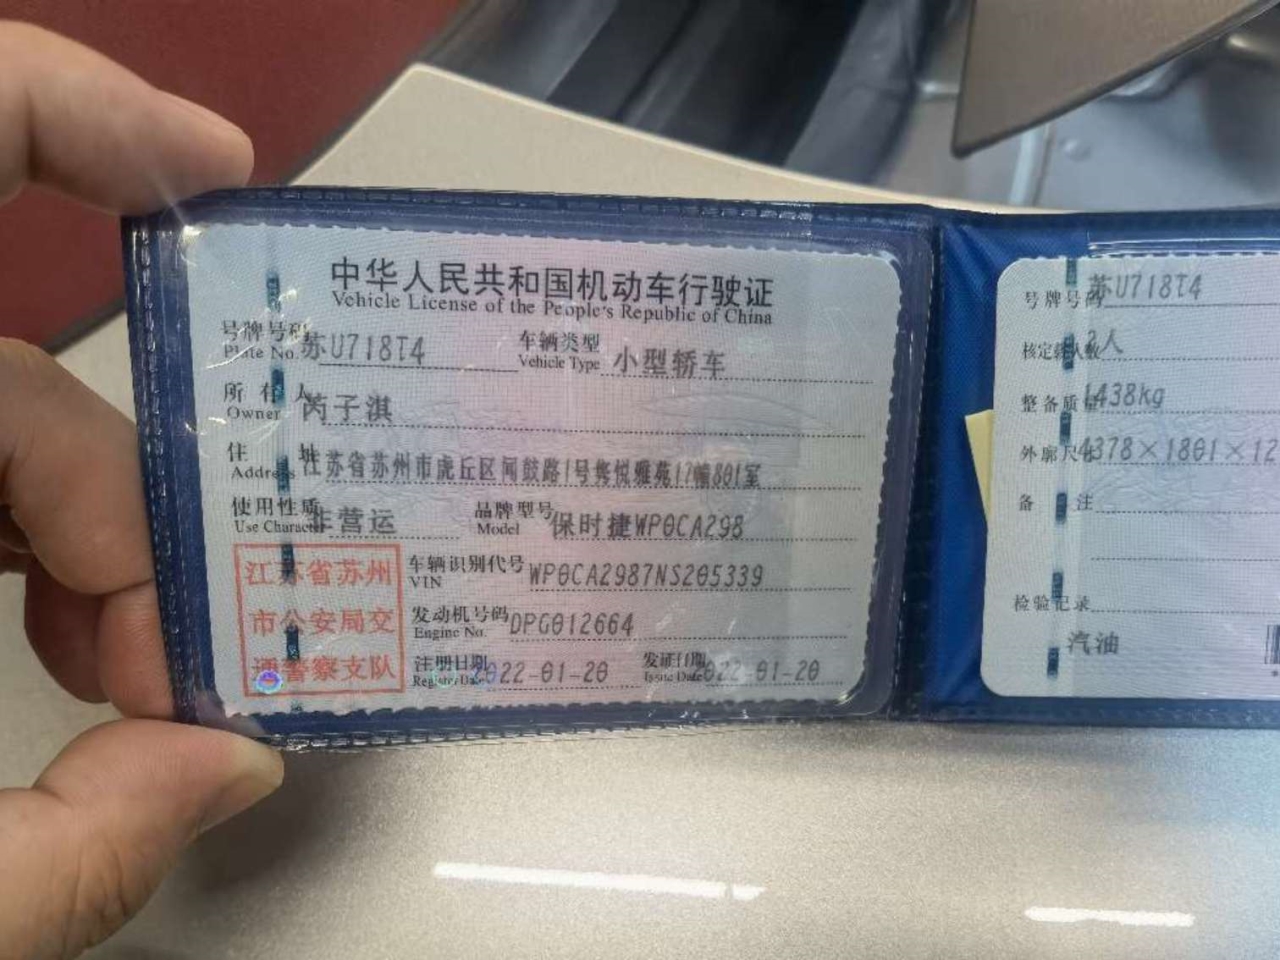 中华人民共和国机动车行驶证
Vehicle License of the People's Republic of China
号牌号码 苏U718T4 车辆类型 小型轿车
Plate No. Vehicle Type
所有人 芮子淇
Owner
住址 江苏省苏州市虎丘区闻鼓路1号隽悦雅苑17幢801室
Address
使用性质 非营运 品牌型号 保时捷WP0CA298
Use Character Model
江苏省苏州
市公安局交
通警察支队
车辆识别代号 WP0CA2987NS205339
VIN
发动机号码 DPG012664
Engine No.
注册日期 2022-01-20 发证日期 2022-01-20
Register Date Issue Date
号牌号码 苏U718T4
核定载人数 2人
整备质量 1438kg
外廓尺寸 4378×1801×12
备注
检验记录
汽油